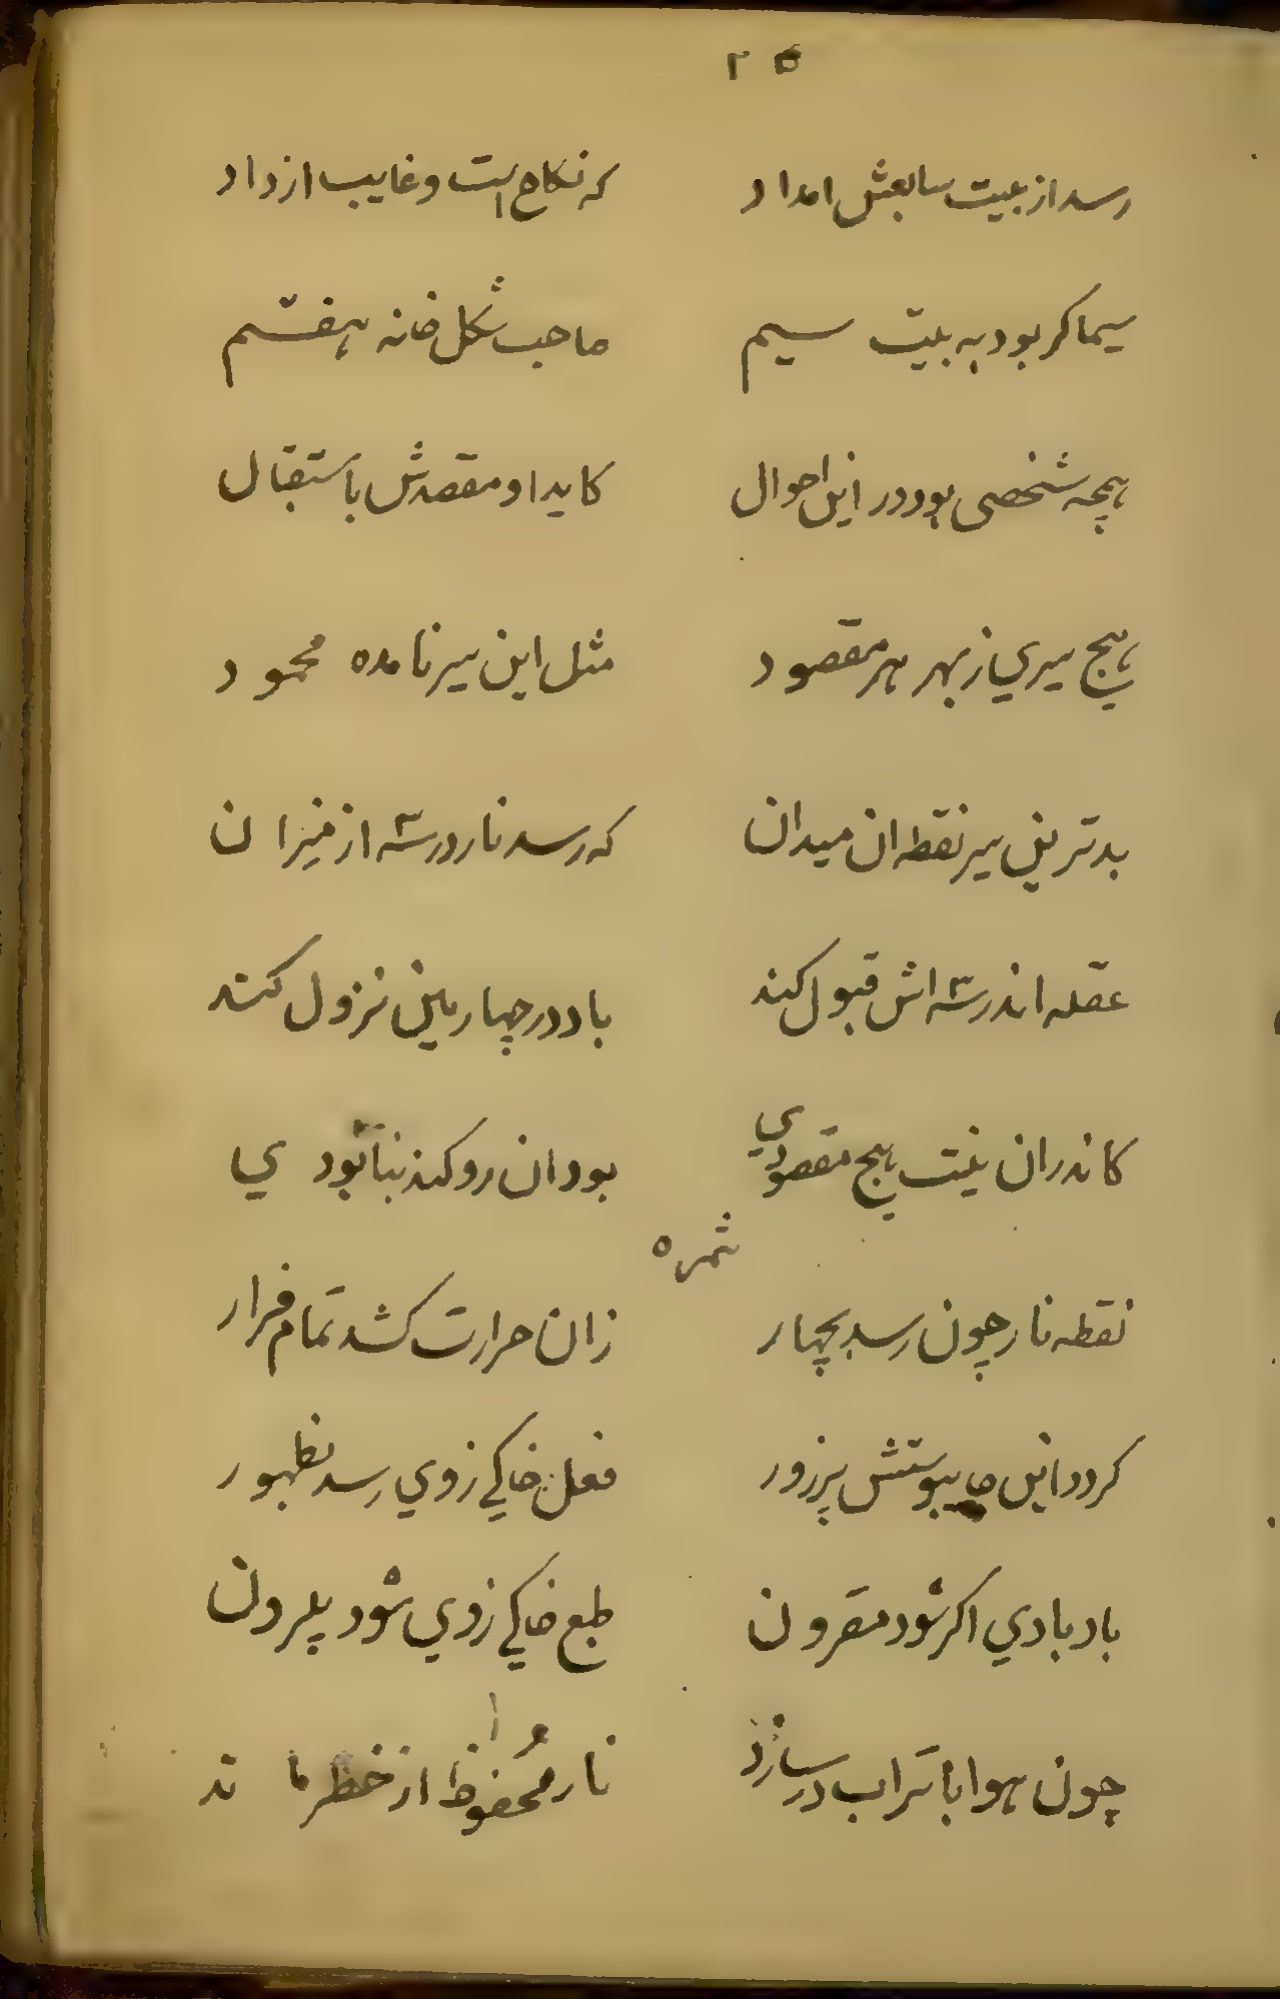 ۲۵
رسد از بیت سابعش امداد که نکاح است و غایب از داد
سیما کر بود به بیت سیم صاحب شکل خانه هفتم
همچه شخصی بود در این احوال کاید او مقصدش باستقبال
هیج سیری ز بهر هر مقصود مثل این سیر نامده محمود
بدترین سیر نقطه ان میدان که رسد نار در سه از میزان
عقله اندر سه اش قبول کند باد در چهارمین نزول کند
کاندران نیست هیج مقصودی بود ان رو کند بنابودی
ثمره
نقطه نار چون رسد بچهار زان حرارت کشد تمام فرار
کردد این پیوستش پرزور فعل خاکی زوی رسد بظهور
باد بادی اکر شود مقرون طبع خاکی زوی شود بیرون
چون هوا با تراب در سازد نار محفوظ از خطر ماند